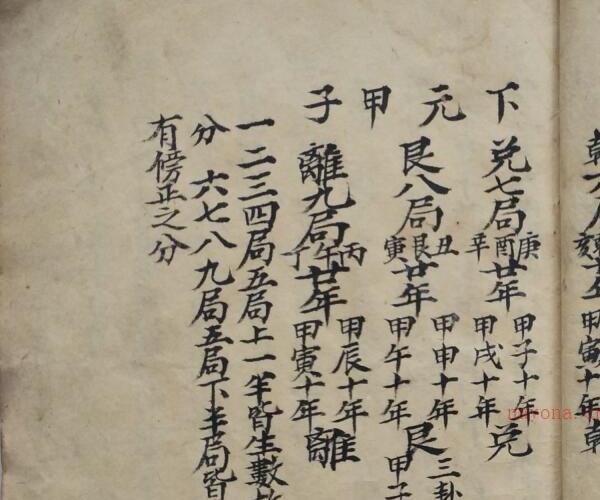 下元甲子
兌七局
庚酉辛
廿年
甲子十年
甲戌十年
兌
艮八局
丑艮寅
廿年
甲申十年
甲午十年
艮
三卦
甲子
離九局
丙午丁
廿年
甲辰十年
甲寅十年
離
一二三四局五局上一半皆生數
分 六七八九局五局下半局皆
有傍正之分